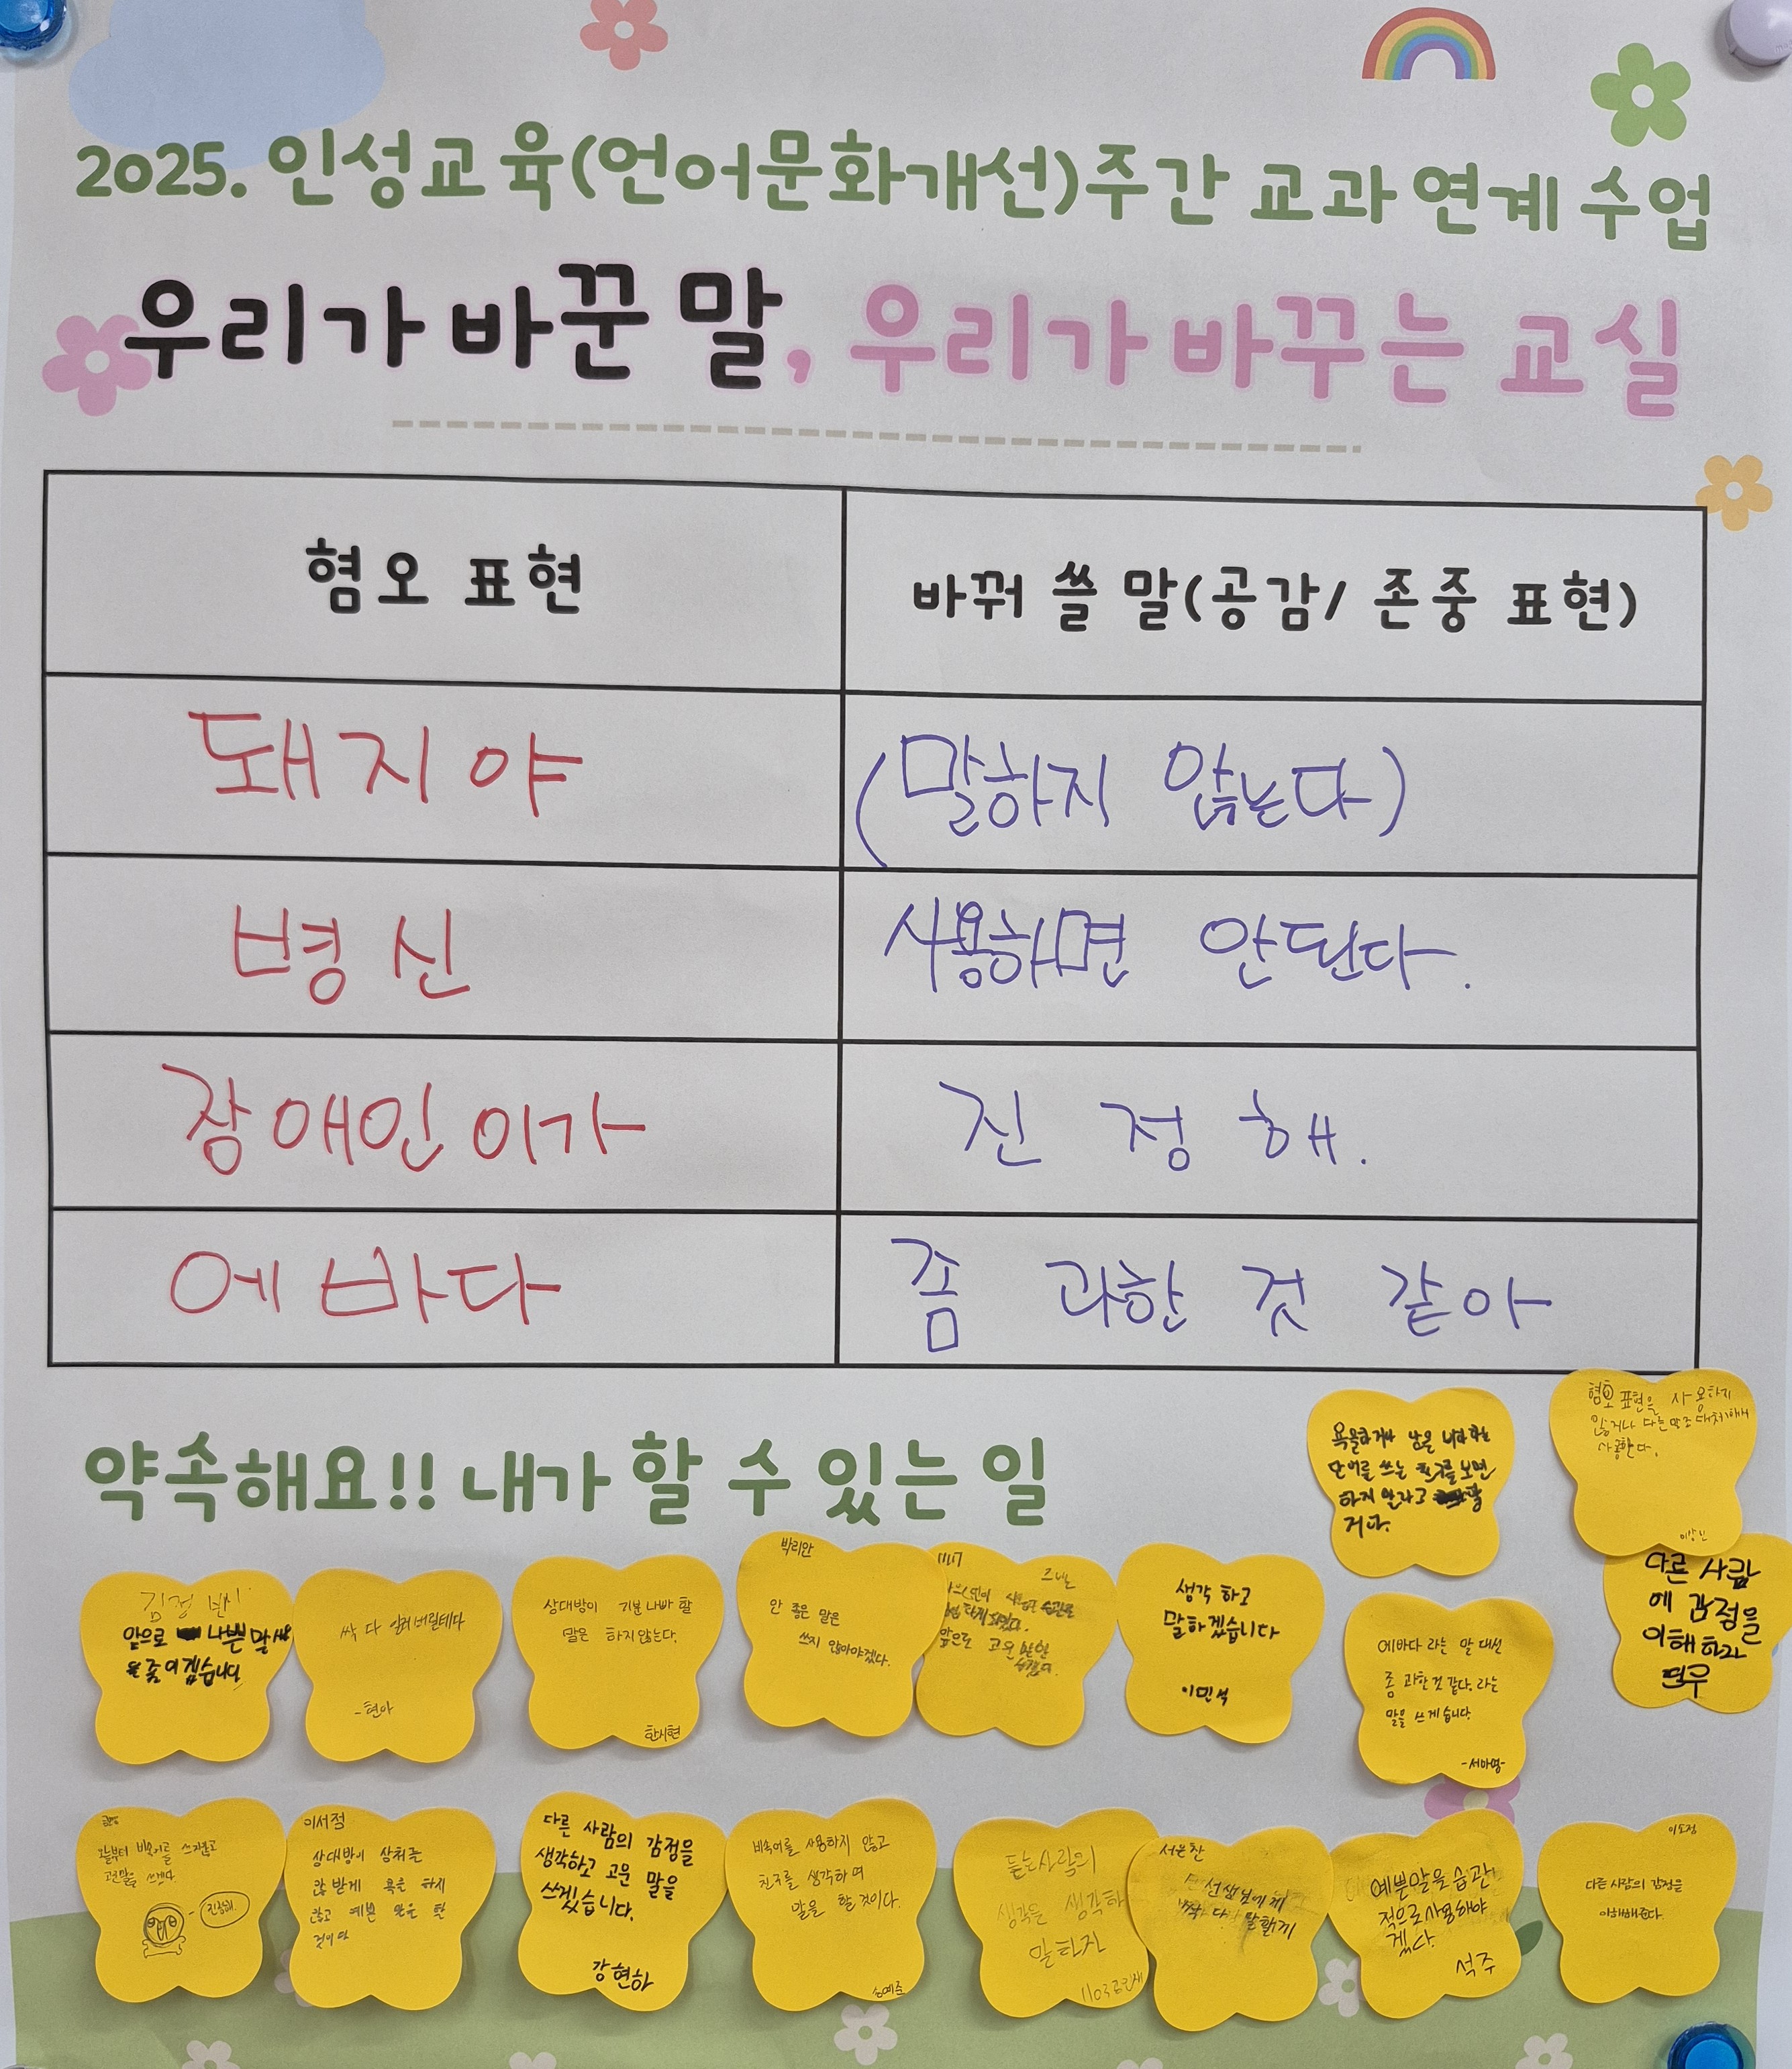 2025. 인성교육(언어문화개선)주간 교과 연계 수업
우리가 바꾼 말, 우리가 바꾸는 교실
혐오 표현
바꿔 쓸 말(공감/ 존중 표현)
돼지야
(말하지 않는다)
병신
사용하면 안된다.
장애인이가
진정해.
에바다
좀 과한 것 같아
약속해요!! 내가 할 수 있는 일
욕을하거나 남을 비하하는
단어를 쓰는 친구를 보면
하지 말라고 할
거다.
혐오 표현을 사용하지
않거나 다른 말로 대처해서
사용한다.
다른 사람
에 감정을
이해하자
앞으로 나쁜 말
을 줄이겠습니다
싹 다 일러버릴테다
-현아
상대방이 기분 나빠 할
말은 하지않는다.
한시현
박리안
안 좋은 말은
쓰지 않아야겠다.
1117
앞으로 고운 말만
생각 하고
말하겠습니다
이민석
에바다 라는 말 대신
좀 과한것 같다. 라는
말을 쓰겠습니다.
-서마영-
쓰지않고
고운말을 쓰겠다.
진정해.
이서정
상대방이 상처를
않받게 욕은 하지
않고 예쁜 말을 할
것이다
다른 사람의 감정을
생각하고 고운 말을
쓰겠습니다.
강현하
비속어를 사용하지 않고
친구를 생각하며
말을 할 것이다.
듣는사람의
생각을 생각하
말하자
서윤찬
선생님에게
싹 다 말할게
예쁜말을 습관
적으로 사용해야
겠다.
석주
이소정
다른 사람의 감정을
이해해준다.